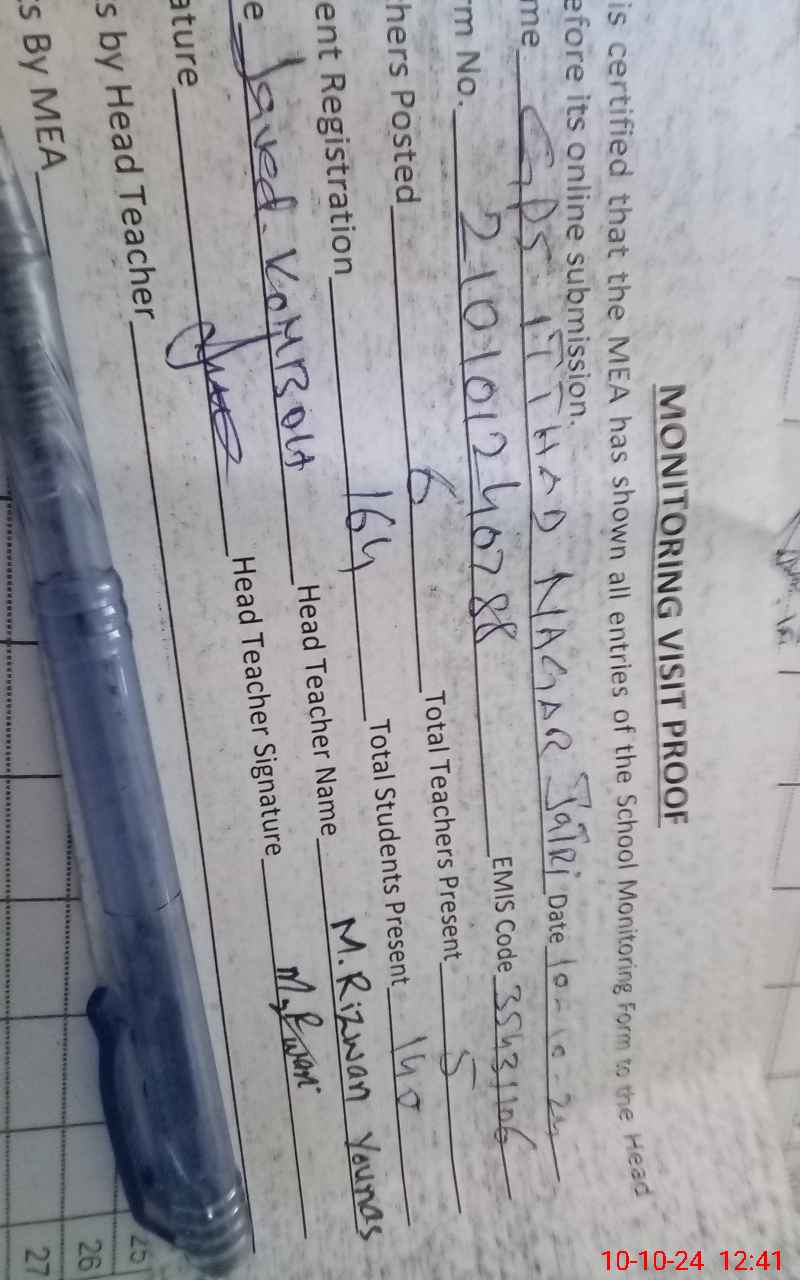 MONITORING VISIT PROOF
is certified that the MEA has shown all entries of the School Monitoring Form to the Head
efore its online submission.
me GPS ITTHAD NAGAR JaTRi Date 10-10-24
rm No. 210101240788 EMIS Code 35431106
hers Posted 6 Total Teachers Present 5
ent Registration 164 Total Students Present 140
e Javed. KOMBOH Head Teacher Name M. Rizwan Younas
ature Head Teacher Signature M. Rizwan
s by Head Teacher
s By MEA
25
26
27
10-10-24 12:41